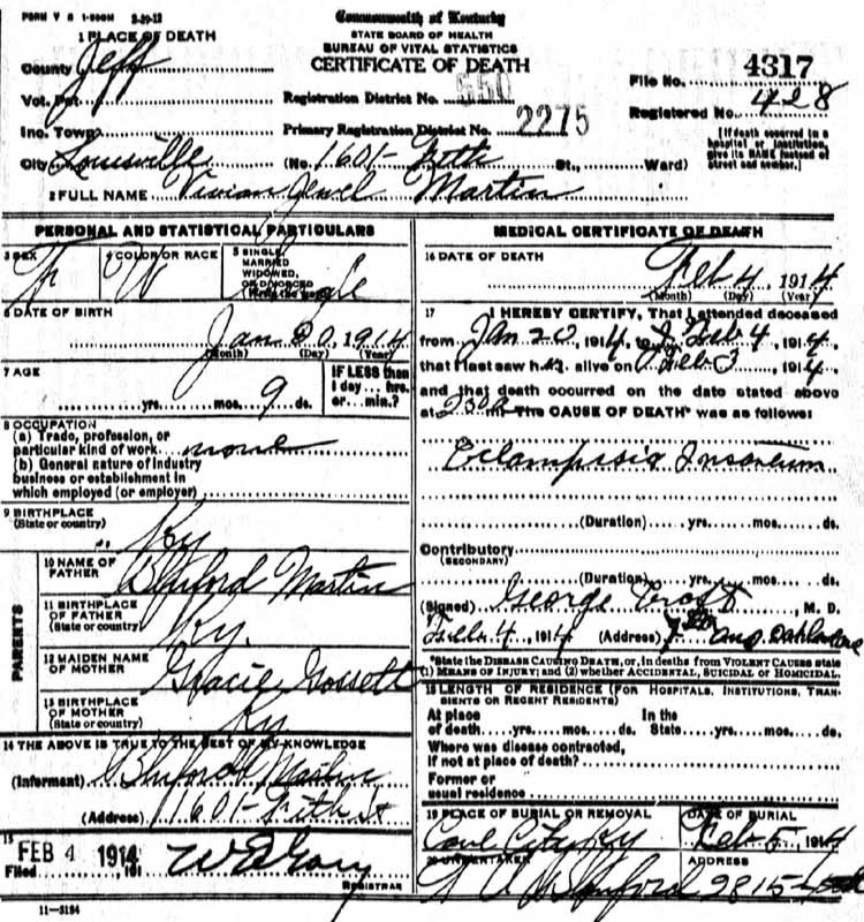 FORM V S 1-500M 3-29-12
Commonwealth of Kentucky
STATE BOARD OF HEALTH
BUREAU OF VITAL STATISTICS
CERTIFICATE OF DEATH
1 PLACE OF DEATH
County Jeff
Vot. Pct.
Inc. Town
City Louisville (No. 1601- St., Ward)
Registration District No. 550
Primary Registration District No. 2275
File No. 4317
Registered No. 428
[If death occurred in a hospital or institution, give its NAME instead of street and number.]
2 FULL NAME Vivian Jewel Martin
PERSONAL AND STATISTICAL PARTICULARS
3 SEX F
4 COLOR OR RACE W
5 SINGLE, MARRIED WIDOWED, OR DIVORCED (Write the word) Single
6 DATE OF BIRTH
Jan 20, 1914
(Month) (Day) (Year)
7 AGE
yrs. mos. 9 ds.
IF LESS than 1 day... hrs. or... min.?
8 OCCUPATION
(a) Trade, profession, or
particular kind of work none
(b) General nature of industry
business or establishment in
which employed (or employer)
9 BIRTHPLACE
(State or country)
Ky
PARENTS
10 NAME OF FATHER Bluford Martin
11 BIRTHPLACE OF FATHER (State or country) Ky.
12 MAIDEN NAME OF MOTHER Gracie Gossett
13 BIRTHPLACE OF MOTHER (State or country) Ky
14 THE ABOVE IS TRUE TO THE BEST OF MY KNOWLEDGE
(Informant) Bluford Martin
(Address) 1601- St
15
Filed FEB 4 1914, 191
REGISTRAR
11-3184
MEDICAL CERTIFICATE OF DEATH
16 DATE OF DEATH
Feb 4, 1914
(Month) (Day) (Year)
17 I HEREBY CERTIFY, That I attended deceased
from Jan 20, 1914, to Feb 4, 1914,
that I last saw h alive on Feb 3, 1914,
and that death occurred on the date stated above
at m. The CAUSE OF DEATH* was as follows:
Eclampsia
(Duration) yrs. mos. ds.
Contributory
(SECONDARY)
(Duration) yrs. mos. ds.
(Signed) George, M. D.
Feb 4, 1914 (Address) and
*State the DISEASE CAUSING DEATH, or, in deaths from VIOLENT CAUSES state
(1) MEANS OF INJURY; and (2) whether ACCIDENTAL, SUICIDAL or HOMICIDAL.
18 LENGTH OF RESIDENCE (FOR HOSPITALS, INSTITUTIONS, TRANSIENTS OR RECENT RESIDENTS)
At place of death yrs. mos. ds. In the State yrs. mos. ds.
Where was disease contracted,
if not at place of death?
Former or
usual residence
19 PLACE OF BURIAL OR REMOVAL
Cave City Ky
DATE OF BURIAL
Feb 5, 1914
20 UNDERTAKER
ADDRESS